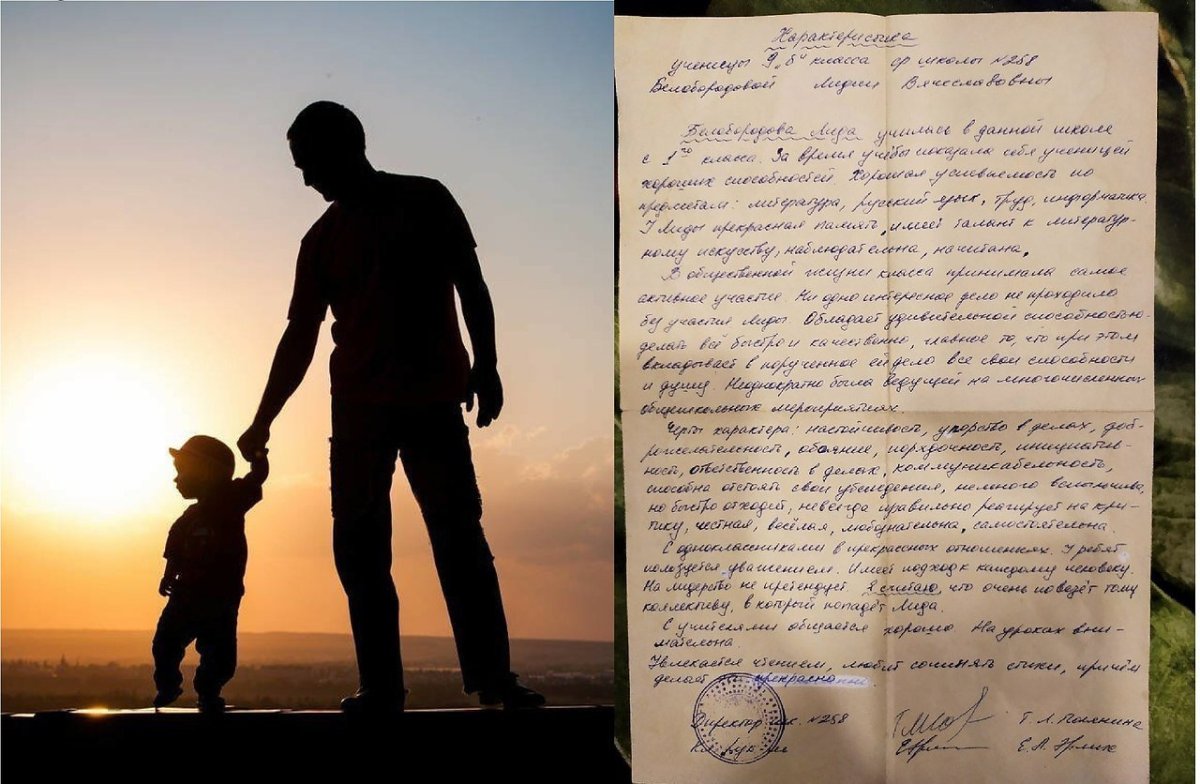 Характеристика
ученицы 9 „б" класса ср школы №258
Белобородовой Лидии Вячеславовны
Белобородова Лида училась в данной школе
с 1го класса. За время учёбы показала себя ученицей
хороших способностей. Хорошая успеваемость по
предметам: литература, русский язык, труд, информатика.
У Лиды прекрасная память, имеет талант к литератур-
ному искусству, наблюдательна, начитана.
В общественной жизни класса принимала самое
активное участие. Ни одно интересное дело не проходило
без участия Лиды. Обладает удивительной способностью
делать всё быстро и качественно, главное то, что при этом
вкладывает в порученное ей дело все свои способности
и душу. Неоднократно была ведущей на многочисленных
общешкольных мероприятиях.
Черты характера: настойчивость, упорство в делах, доб-
рожелательность, обаяние, порядочность, инициатив-
ность, ответственность в делах, коммуникабельность,
способна отстоять свои убеждения, немного вспыльчива,
но быстро отходит, невсегда правильно реагирует на кри-
тику, честная, весёлая, любознательна, самостоятельна.
С одноклассниками в прекрасных отношениях. У ребят
пользуется уважением. Имеет подход к каждому человеку.
На лидерство не претендует. Я считаю, что очень повезёт тому
коллективу, в который попадёт Лида.
С учителями общается хорошо. На уроках вни-
мательна.
Увлекается чтением, любит сочинять стихи, причём
делает прекрасно
Директор шк. №258
Кл. рук-ль Е. А.